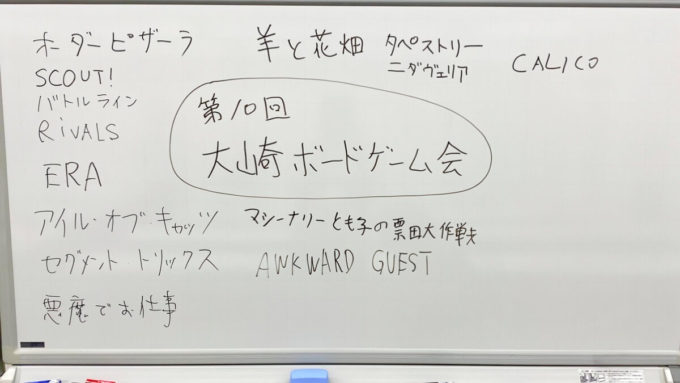 オーダーピザーラ
SCOUT!
バトルライン
RiVALS
ERA
アイル・オブ・キャッツ
セグメント・トリックス
悪魔でお仕事
羊と花畑
タペストリー
ニダヴェリア
CALICO
第10回
大崎ボードゲーム会
マシーナリーとも子の票田大作戦
AWKWARD GUEST